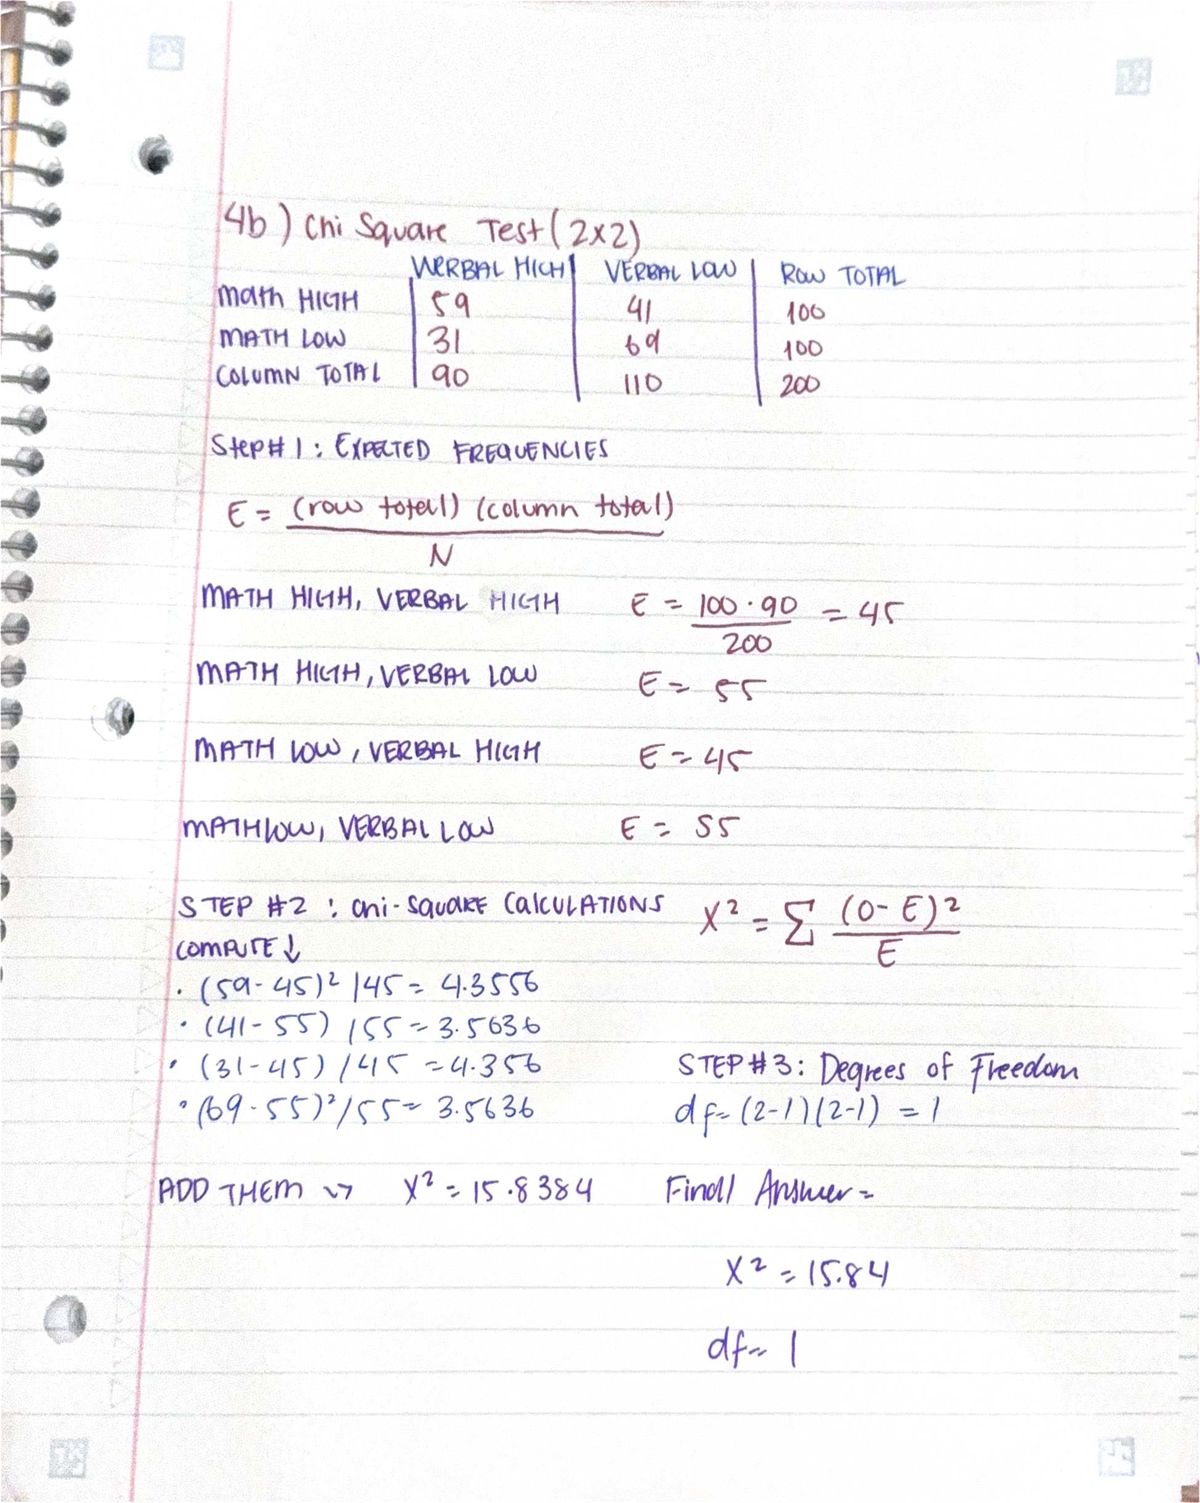 4b) Chi Square Test (2x2)
VERBAL HIGH VERBAL LOW ROW TOTAL
Math HIGH 59 41 100
MATH LOW 31 69 100
COLUMN TOTAL 90 110 200
Step #1: EXPECTED FREQUENCIES
E = (row total) (column total)
N
MATH HIGH, VERBAL HIGH E = 100 · 90 = 45
200
MATH HIGH, VERBAL LOW E = 55
MATH LOW, VERBAL HIGH E = 45
MATH LOW, VERBAL LOW E = 55
STEP #2 : Chi-SQUARE CAlCULATIONS X² = Σ (O-E)²
COMPUTE ↓ E
· (59-45)² /45 = 4.3556
· (41-55) /55 = 3.5636
· (31-45) /45 = 4.356
· (69-55)²/55 = 3.5636
STEP #3: Degrees of Freedom
df= (2-1)(2-1) = 1
ADD THEM → X² = 15.8384 Final Answer =
X² = 15.84
df= 1